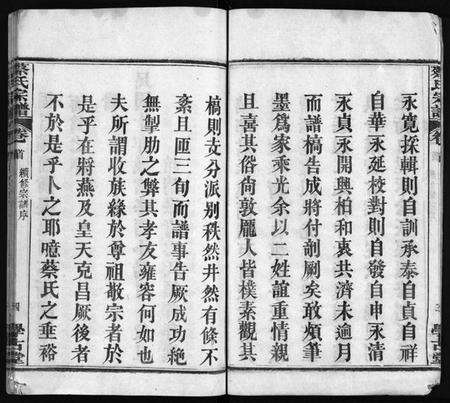 蔡氏宗譜
卷首
永寬採輯則自訓承泰自貞自祥
自華永延校對則自發自申永清
永貞永開興柏和衷共濟未逾月
而譜槁告成將付剞劂矣敢煩筆
墨爲家乘光余以二姓誼重情親
且喜其俗尚敦龐人皆樸素觀其
學古堂
蔡氏宗譜
卷首
續修宗譜序
槁則支分派别秩然井然有條不
紊且匝三旬而譜事告厥成功絶
無掣肋之弊其孝友雍容何如也
夫所謂收族緣於尊祖敬宗者於
是乎在將燕及皇天克昌厥後者
不於是乎卜之耶噫蔡氏之垂裕
四
學古堂